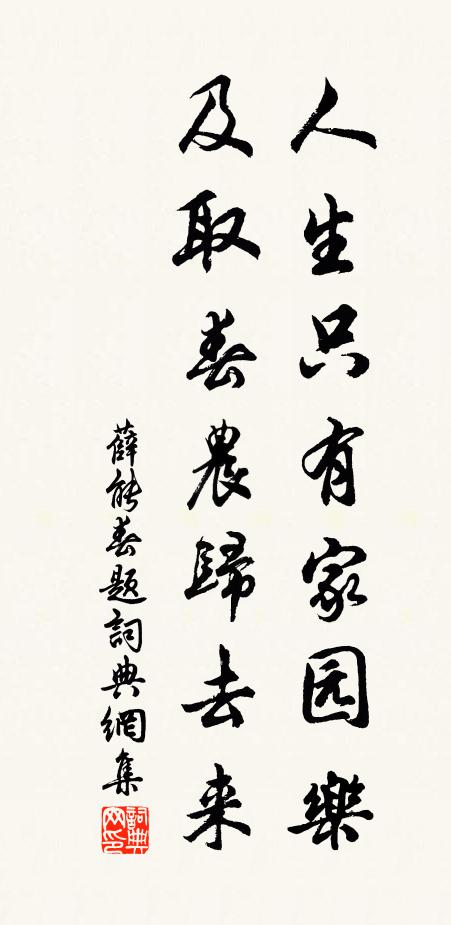 人生只有家园樂
及取春農歸去来
薛能春题詞典網集
詞典网印